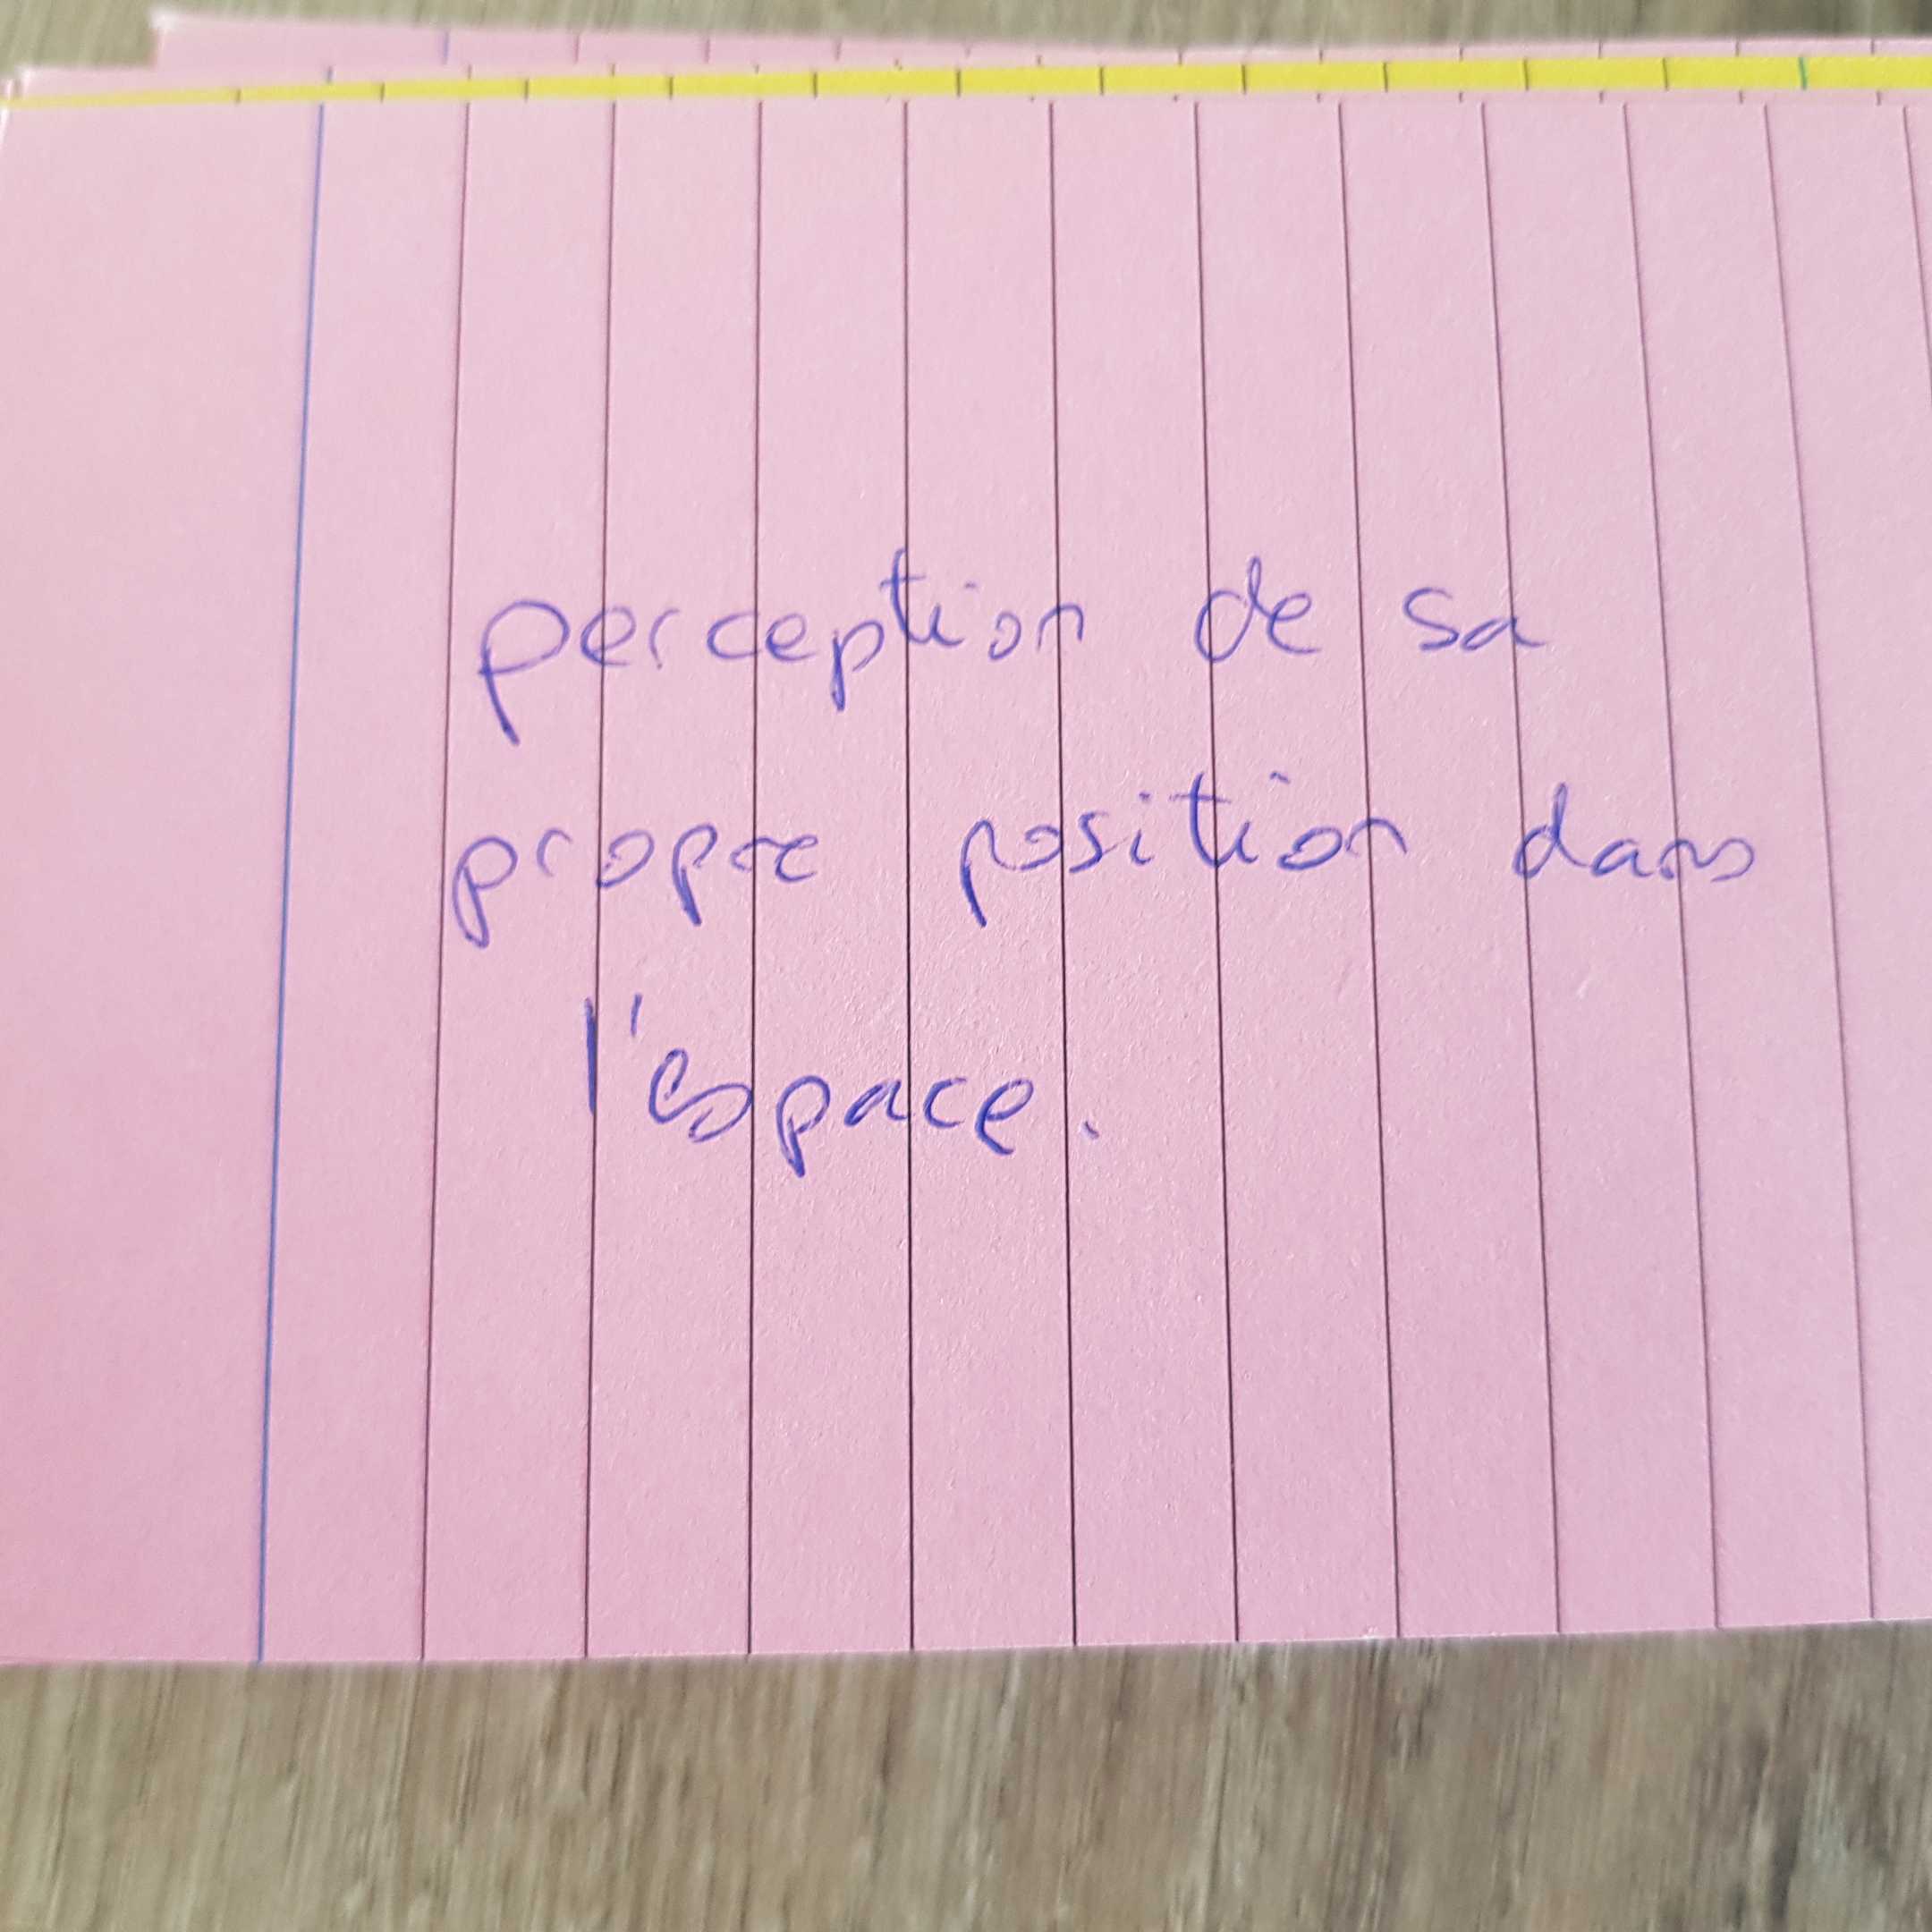 perception de sa
propre position dans
l'espace.